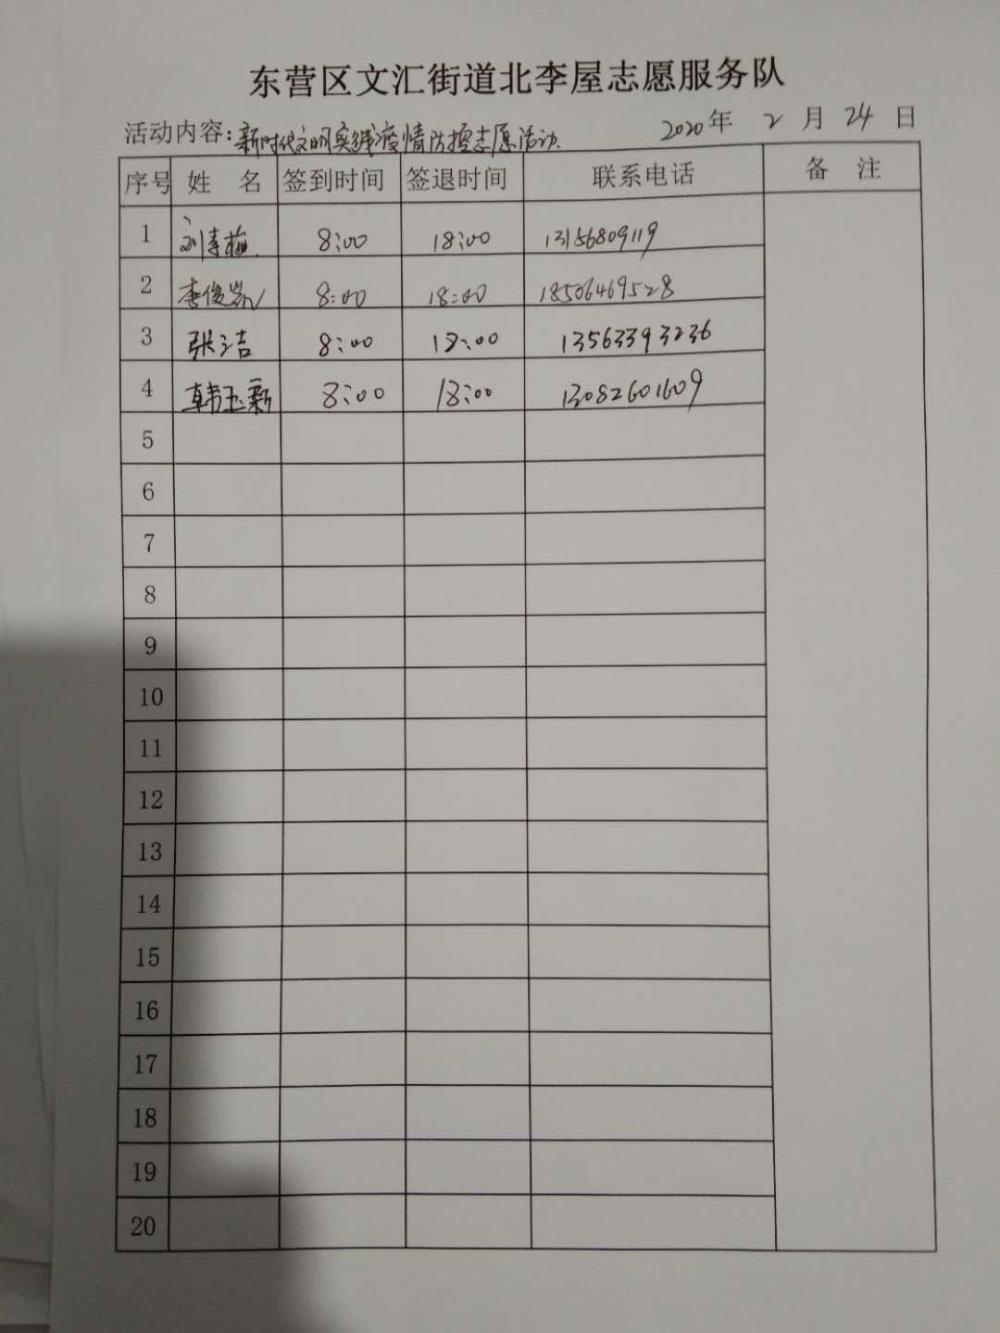 东营区文汇街道北李屋志愿服务队
活动内容:新时代文明实践疫情防控志愿活动 2020年 2 月 24 日
序号 姓 名 签到时间 签退时间 联系电话 备 注
1 刘春梅 8:00 18:00 13156809119
2 李俊凯 8:00 18:00 18506469528
3 张洁 8:00 18:00 13563393236
4 韩玉新 8:00 18:00 13082601609
5
6
7
8
9
10
11
12
13
14
15
16
17
18
19
20